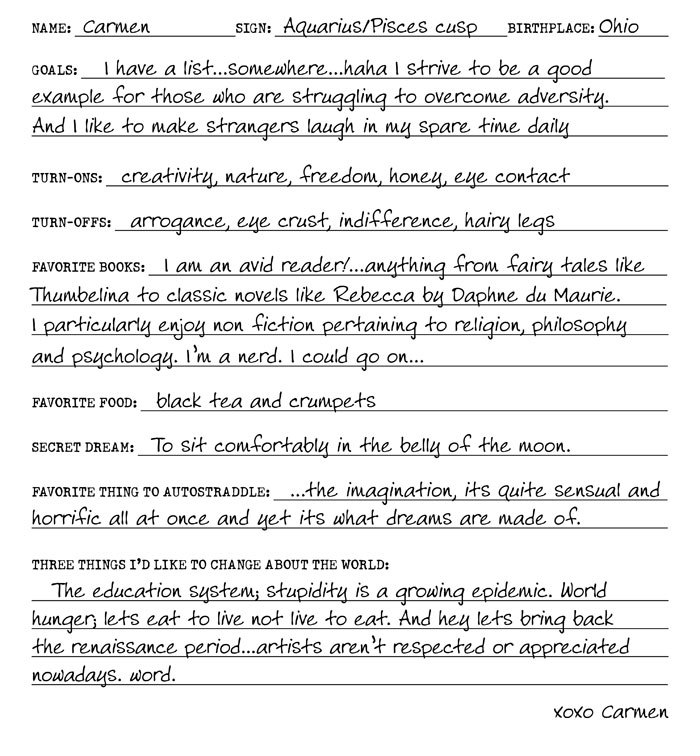 NAME: Carmen SIGN: Aquarius/Pisces cusp BIRTHPLACE: Ohio
GOALS: I have a list...somewhere...haha I strive to be a good
example for those who are struggling to overcome adversity.
And I like to make strangers laugh in my spare time daily
TURN-ONS: creativity, nature, freedom, honey, eye contact
TURN-OFFS: arrogance, eye crust, indifference, hairy legs
FAVORITE BOOKS: I am an avid reader!...anything from fairy tales like
Thumbelina to classic novels like Rebecca by Daphne du Maurie.
I particularly enjoy non fiction pertaining to religion, philosophy
and psychology. I'm a nerd. I could go on...
FAVORITE FOOD: black tea and crumpets
SECRET DREAM: To sit comfortably in the belly of the moon.
FAVORITE THING TO AUTOSTRADDLE: ...the imagination, its quite sensual and
horrific all at once and yet its what dreams are made of.
THREE THINGS I'D LIKE TO CHANGE ABOUT THE WORLD:
The education system; stupidity is a growing epidemic. World
hunger; lets eat to live not live to eat. And hey lets bring back
the renaissance period...artists aren't respected or appreciated
nowadays. word.
xoxo Carmen